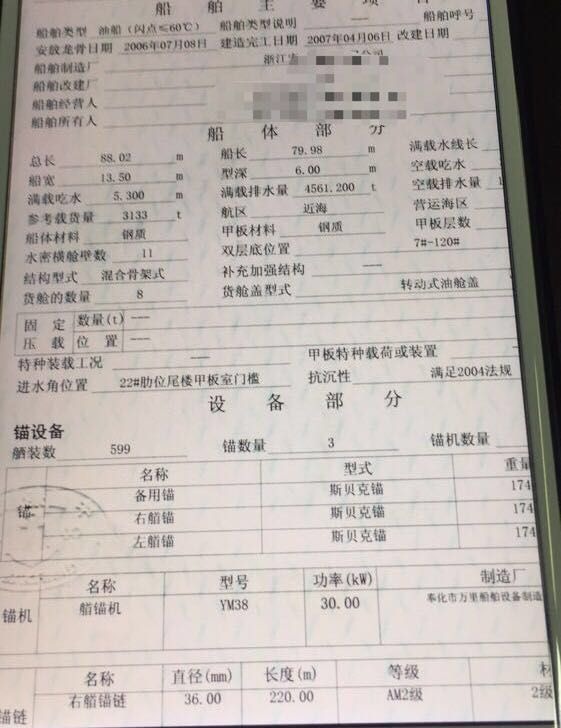 船 舶 主 要 项 目
船舶类型 油船(闪点≤60℃) 船舶类型说明 — 船舶呼号
安放龙骨日期 2006年07月08日 建造完工日期 2007年04月06日 改建日期
船舶制造厂 浙江
船舶改建厂
船舶经营人
船舶所有人
船 体 部 分
总长 88.02 m 船长 79.98 m 满载水线长
船宽 13.50 m 型深 6.00 m 空载吃水
满载吃水 5.300 m 满载排水量 4561.200 t 空载排水量 1
参考载货量 3133 t 航区 近海 营运海区
船体材料 钢质 甲板材料 钢质 甲板层数
水密横舱壁数 11 双层底位置 7#-120#
结构型式 混合骨架式 补充加强结构 ---
货舱的数量 8 货舱盖型式 转动式油舱盖
固 定 数量(t) ---
压 载 位 置 ---
特种装载工况 --- 甲板特种载荷或装置
进水角位置 22#肋位尾楼甲板室门槛 抗沉性 满足2004法规
设 备 部 分
锚设备
舾装数 599 锚数量 3 锚机数量
名称 型式 重量
锚 备用锚 斯贝克锚 174
右艏锚 斯贝克锚 174
左艏锚 斯贝克锚 174
名称 型号 功率(kW) 制造厂
锚机 艏锚机 YM38 30.00 奉化市万里船舶设备制造
名称 直径(mm) 长度(m) 等级 材
锚链 右艏锚链 36.00 220.00 AM2级 2级